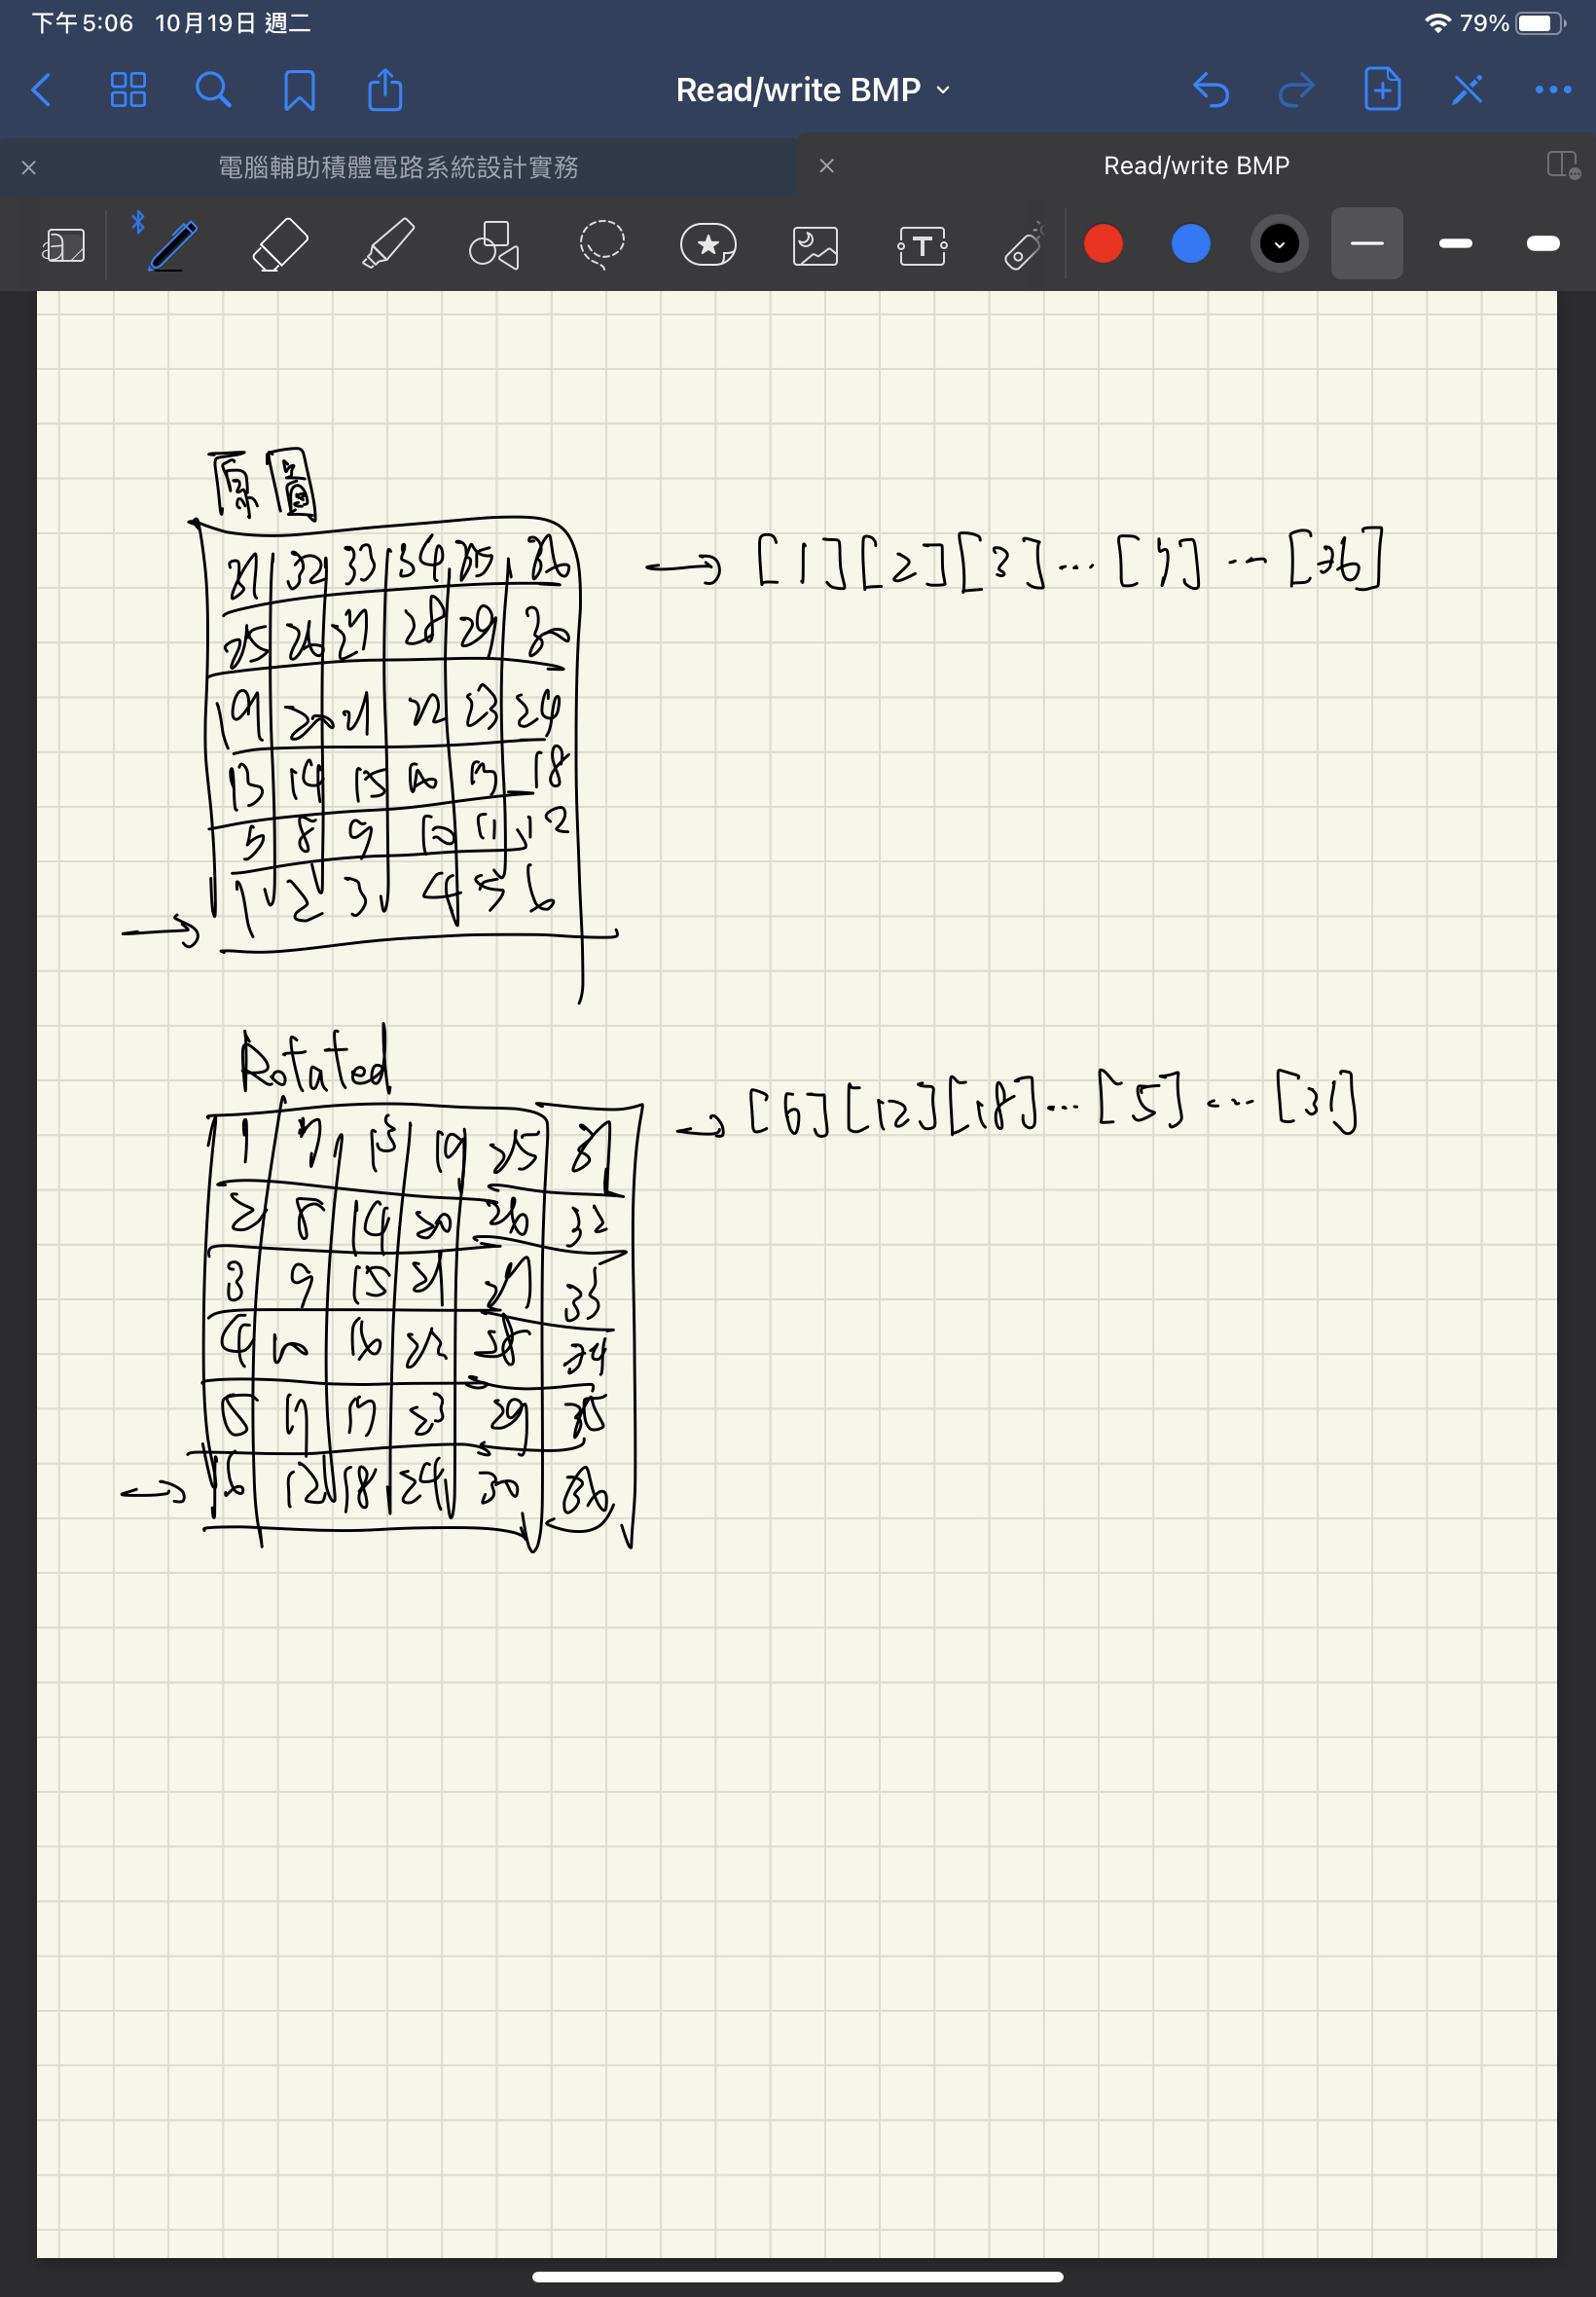 下午5:06 10月19日 週二 79%
Read/write BMP
電腦輔助積體電路系統設計實務 Read/write BMP
原圖
31 32 33 34 35 36 → [1][2][3]...[7]...[36]
25 26 27 28 29 30
19 20 21 22 23 24
13 14 15 16 17 18
7 8 9 10 11 12
1 2 3 4 5 6
→
Rotated
1 7 13 19 25 31 → [6][12][18]...[5]...[31]
2 8 14 20 26 32
3 9 15 21 27 33
4 10 16 22 28 34
5 11 17 23 29 35
→ 6 12 18 24 30 36